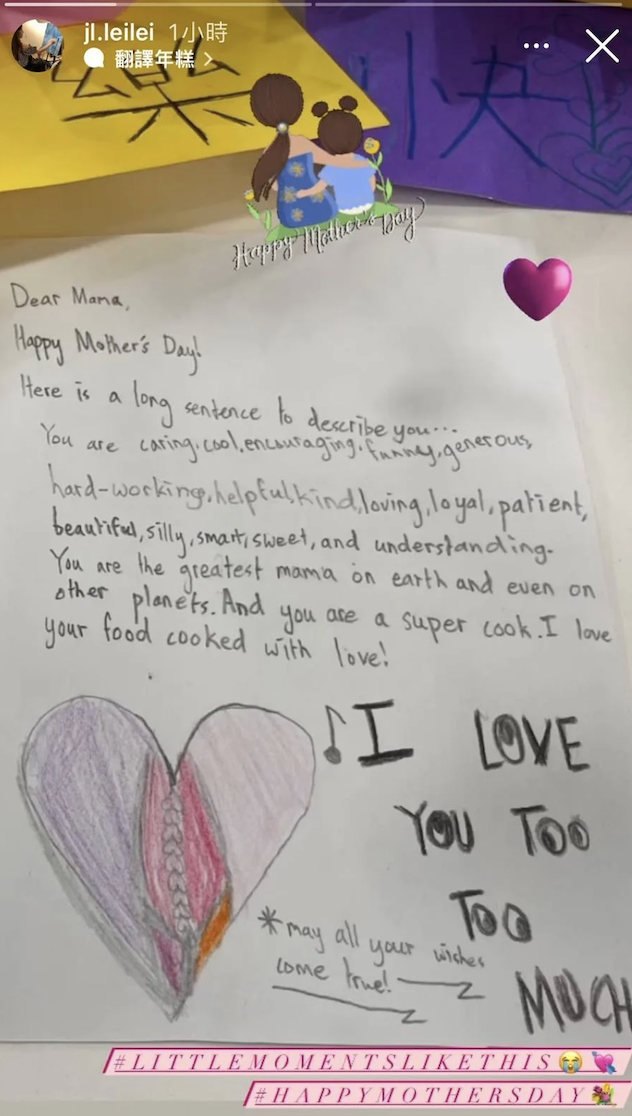 jl.leilei 1小時
翻譯年糕 >
樂 快
Happy Mother's Day
Dear Mama,
Happy Mother's Day!
Here is a long sentence to describe you...
You are caring, cool, encouraging, funny, generous,
hard-working, helpful, kind, loving, loyal, patient,
beautiful, silly, smart, sweet, and understanding.
You are the greatest mama on earth and even on
other planets. And you are a super cook. I love
your food cooked with love!
♪I LOVE
YOU TOO
TOO
MUCH
*may all your wishes
come true!
#LITTLEMOMENTSLIKETHIS😭💘
#HAPPYMOTHERSDAY💐